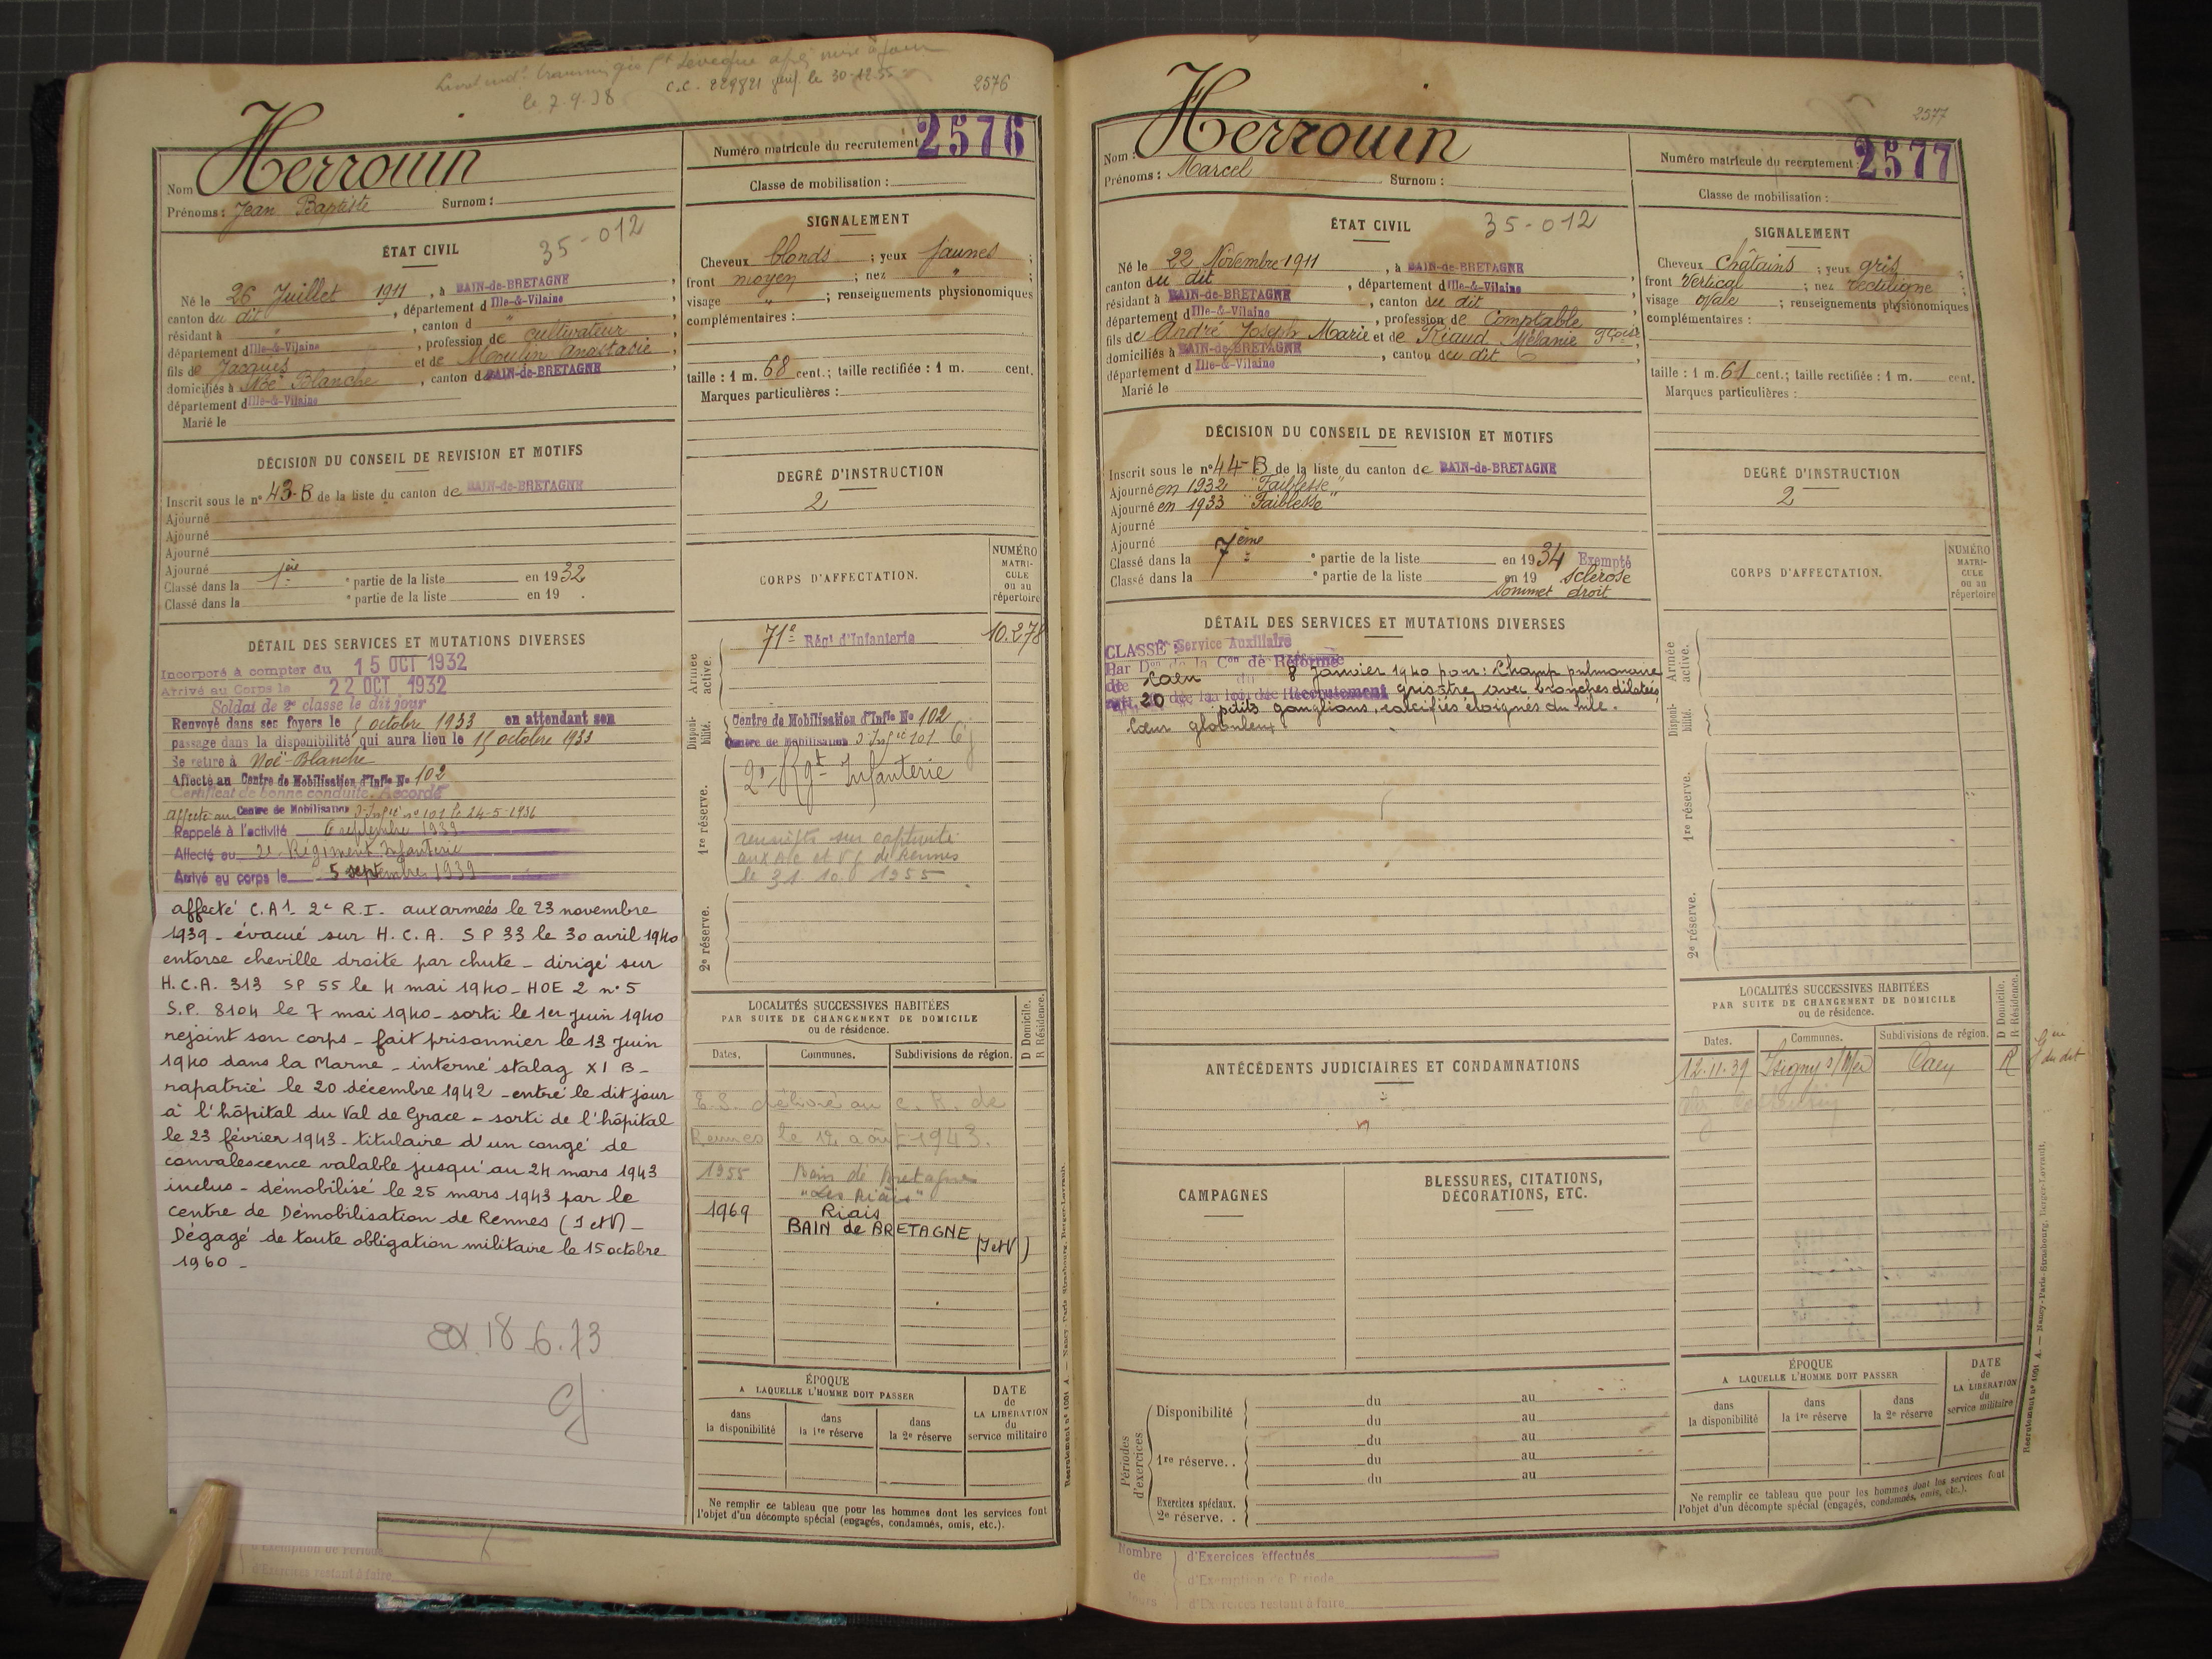 le 7.9.38
C.C. 229821 le 30-12-55
2576
Herrouin
Nom
Prénoms : Jean Baptiste Surnom :
Numéro matricule du recrutement 2576
Classe de mobilisation :
ÉTAT CIVIL
35-012
Né le 26 Juillet 1911, à BAIN-de-BRETAGNE,
canton du dit, département d Ille-&-Vilaine
résidant à ", canton d "
département d Ille-&-Vilaine, profession de cultivateur
fils de Jacques et de Moulin Anastasie,
domiciliés à Noë Blanche, canton de BAIN-de-BRETAGNE,
département d Ille-&-Vilaine
Marié le
SIGNALEMENT
Cheveux blonds ; yeux jaunes ;
front moyen ; nez " ;
visage " ; renseignements physionomiques
complémentaires :
taille : 1 m. 68 cent.; taille rectifiée : 1 m. cent.
Marques particulières :
DÉCISION DU CONSEIL DE REVISION ET MOTIFS
Inscrit sous le n° 43-B de la liste du canton de BAIN-de-BRETAGNE
Ajourné
Ajourné
Ajourné
Ajourné
Classé dans la 1ère e partie de la liste en 1932
Classé dans la e partie de la liste en 19 .
DEGRÉ D'INSTRUCTION
2
DÉTAIL DES SERVICES ET MUTATIONS DIVERSES
Incorporé à compter du 15 OCT 1932
Arrivé au Corps le 22 OCT 1932
Soldat de 2e classe le dit jour
Renvoyé dans ses foyers le octobre 1933 en attendant son
passage dans la disponibilité qui aura lieu le 15 octobre 1933
Se retire à Noë-Blanche
Affecté au Centre de Mobilisation d'Infie No 102
Certificat de bonne conduite. Accordé
affecté au Centre de Mobilisation d'Infie n° 101 le 24-5-1936
Rappelé à l'activité 6 septembre 1939
Affecté au 2e Régiment Infanterie
Arrivé au corps le 5 septembre 1939
affecté C.A1. 2e R.I. aux armées le 23 novembre
1939 - évacué sur H.C.A. SP 33 le 30 avril 1940
entorse cheville droite par chute - dirigé sur
H.C.A. 313 SP 55 le 4 mai 1940 - HOE 2 n° 5
S.P. 8104 le 7 mai 1940 - sorti le 1er Juin 1940
rejoint son corps - fait prisonnier le 13 Juin
1940 dans la Marne - interné stalag XI B -
rapatrié le 20 décembre 1942 - entré le dit jour
à l'hôpital du Val de Grace - sorti de l'hôpital
le 23 février 1943 - titulaire d'un congé de
convalescence valable jusqu'au 24 mars 1943
inclus - démobilisé le 25 mars 1943 par le
centre de Démobilisation de Rennes (I et V) -
Dégagé de toute obligation militaire le 15 octobre
1960 -
Ex. 18.6.73
CORPS D'AFFECTATION.
NUMÉRO MATRICULE ou au répertoire
Armée active.
71e Régt d'Infanterie 10.278
Disponibilité.
Centre de Mobilisation d'Infie No 102
Centre de Mobilisation d'Infie 101
1re réserve.
2e Rgt Infanterie
renseigts sur captivité
aux AC et VG de Rennes
le 31.10.1955
2e réserve.
LOCALITÉS SUCCESSIVES HABITÉES
PAR SUITE DE CHANGEMENT DE DOMICILE
ou de résidence.
D Domicile.
R Résidence.
Dates. Communes. Subdivisions de région.
E.S. délivré au C.R. de
Rennes le 12 août 1943.
1955 Bain de Bretagne
"Les Riais"
1969 Riais
BAIN de BRETAGNE (I et V)
ÉPOQUE
A LAQUELLE L'HOMME DOIT PASSER
dans la disponibilité
dans la 1re réserve
dans la 2e réserve
DATE de LA LIBÉRATION du service militaire
Ne remplir ce tableau que pour les hommes dont les services font
l'objet d'un décompte spécial (engagés, condamnés, omis, etc.).
d'Exemption de Période
d'Exercices restant à faire
Recrutement n° 1001 A. — Nancy-Paris-Strasbourg, Berger-Levrault.
2577
Herrouin
Nom :
Prénoms : Marcel Surnom :
Numéro matricule du recrutement : 2577
Classe de mobilisation :
ÉTAT CIVIL
35-012
Né le 22 Novembre 1911, à BAIN-de-BRETAGNE
canton du dit, département d Ille-&-Vilaine,
résidant à BAIN-de-BRETAGNE, canton du dit
département d Ille-&-Vilaine, profession de Comptable
fils de André Joseph Marie et de Riaud Mélanie
domiciliés à BAIN-de-BRETAGNE, canton du dit,
département d Ille-&-Vilaine
Marié le
SIGNALEMENT
Cheveux Châtains ; yeux gris ;
front Vertical ; nez rectiligne ;
visage ovale ; renseignements physionomiques
complémentaires :
taille : 1 m. 61 cent.; taille rectifiée : 1 m. cent.
Marques particulières :
DÉCISION DU CONSEIL DE REVISION ET MOTIFS
Inscrit sous le n° 44-B de la liste du canton de BAIN-de-BRETAGNE
Ajourné en 1932 "Faiblesse"
Ajourné en 1933 "Faiblesse"
Ajourné
Ajourné
Classé dans la 7ème e partie de la liste en 1934 Exempté
Classé dans la e partie de la liste en 19 sclérose
sommet droit
DEGRÉ D'INSTRUCTION
2
DÉTAIL DES SERVICES ET MUTATIONS DIVERSES
CLASSÉ Service Auxiliaire
Par Don de la Con de Réforme
de Caen du 8 Janvier 1940 pour : Champ pulmonaire
art. 20 de la loi de Recrutement grisâtre avec bronches dilatées
petits ganglions calcifiés éloignés du hile.
Cœur globuleux.
CORPS D'AFFECTATION.
NUMÉRO MATRICULE ou au répertoire
Armée active.
Disponibilité.
1re réserve.
2e réserve.
ANTÉCÉDENTS JUDICIAIRES ET CONDAMNATIONS
CAMPAGNES
BLESSURES, CITATIONS,
DÉCORATIONS, ETC.
LOCALITÉS SUCCESSIVES HABITÉES
PAR SUITE DE CHANGEMENT DE DOMICILE
ou de résidence.
D Domicile.
R Résidence.
Dates. Communes. Subdivisions de région.
12.11.39 Isigny s/Mer Caen R
du dit
Périodes d'exercices
Disponibilité du au
du au
1re réserve.. du au
du au
du au
Exercices spéciaux.
2e réserve. .
ÉPOQUE
A LAQUELLE L'HOMME DOIT PASSER
dans la disponibilité
dans la 1re réserve
dans la 2e réserve
DATE de LA LIBÉRATION du service militaire
Ne remplir ce tableau que pour les hommes dont les services font
l'objet d'un décompte spécial (engagés, condamnés, omis, etc.).
Nombre de Jours
d'Exercices effectués
d'Exemption de Période
d'Exercices restant à faire
Recrutement n° 1001 A. — Nancy-Paris-Strasbourg, Berger-Levrault.